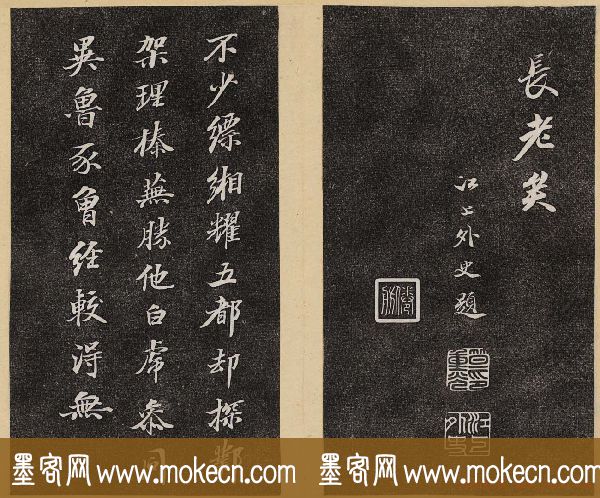 長老矣
江上外史題
不少縹緗耀五都却探鄴
架理榛蕪勝他白虎叅同
異魯豕曾經較淂無
墨客网 www.mokecn.com
墨客网 www.mokecn.com